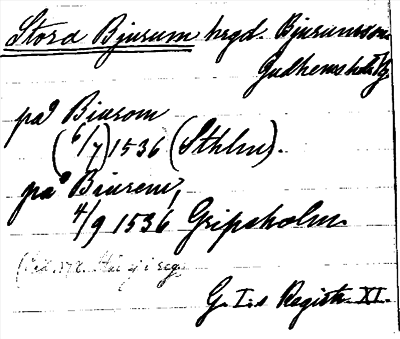 Stora Bjurum hrgd. Bjurums sn.
Gudhems hd Vg
på Biurom
(6/7) 1536 (Sthlm).
på Biurem,
4/9 1536 Gripsholm.
i reg.
G. I:s Registr. XI.